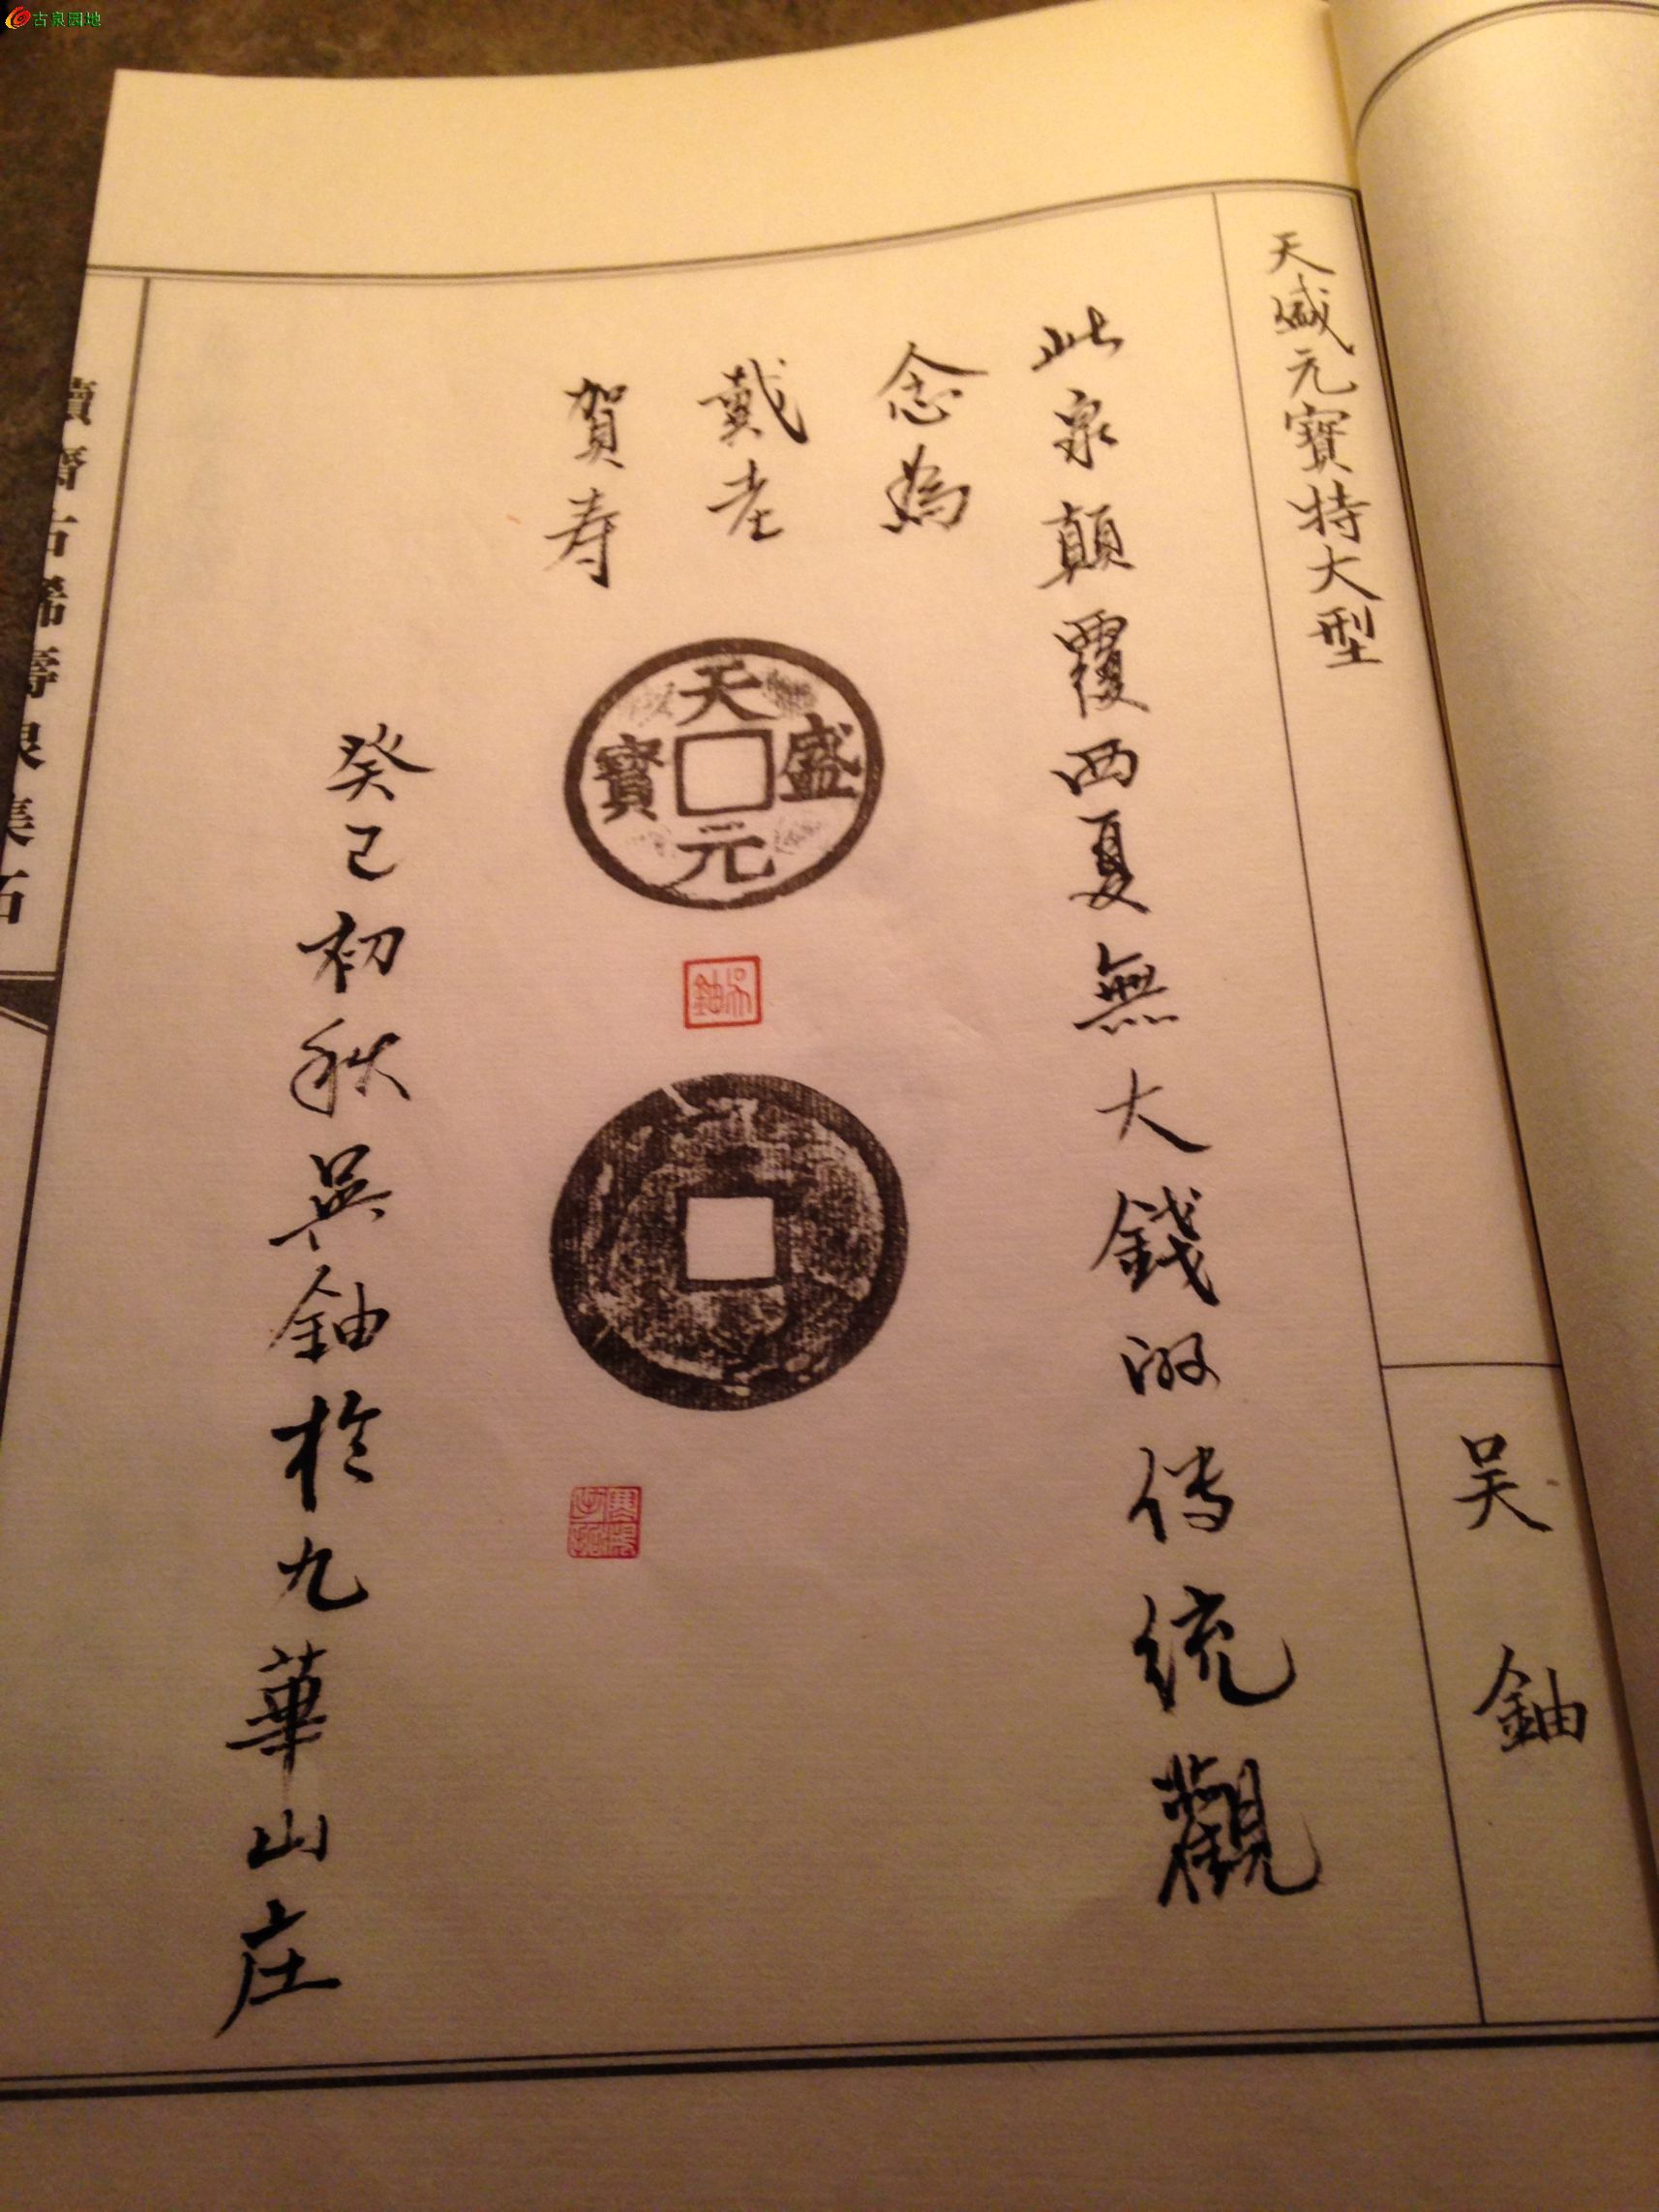 古泉园地
天盛元寶特大型
吴鈾
此泉顛覆西夏無大錢的传统觀
念為
戴老
賀寿
天盛元寶
吳鈾
癸巳初秋吳鈾於九華山庄
齋古稀壽泉集拓